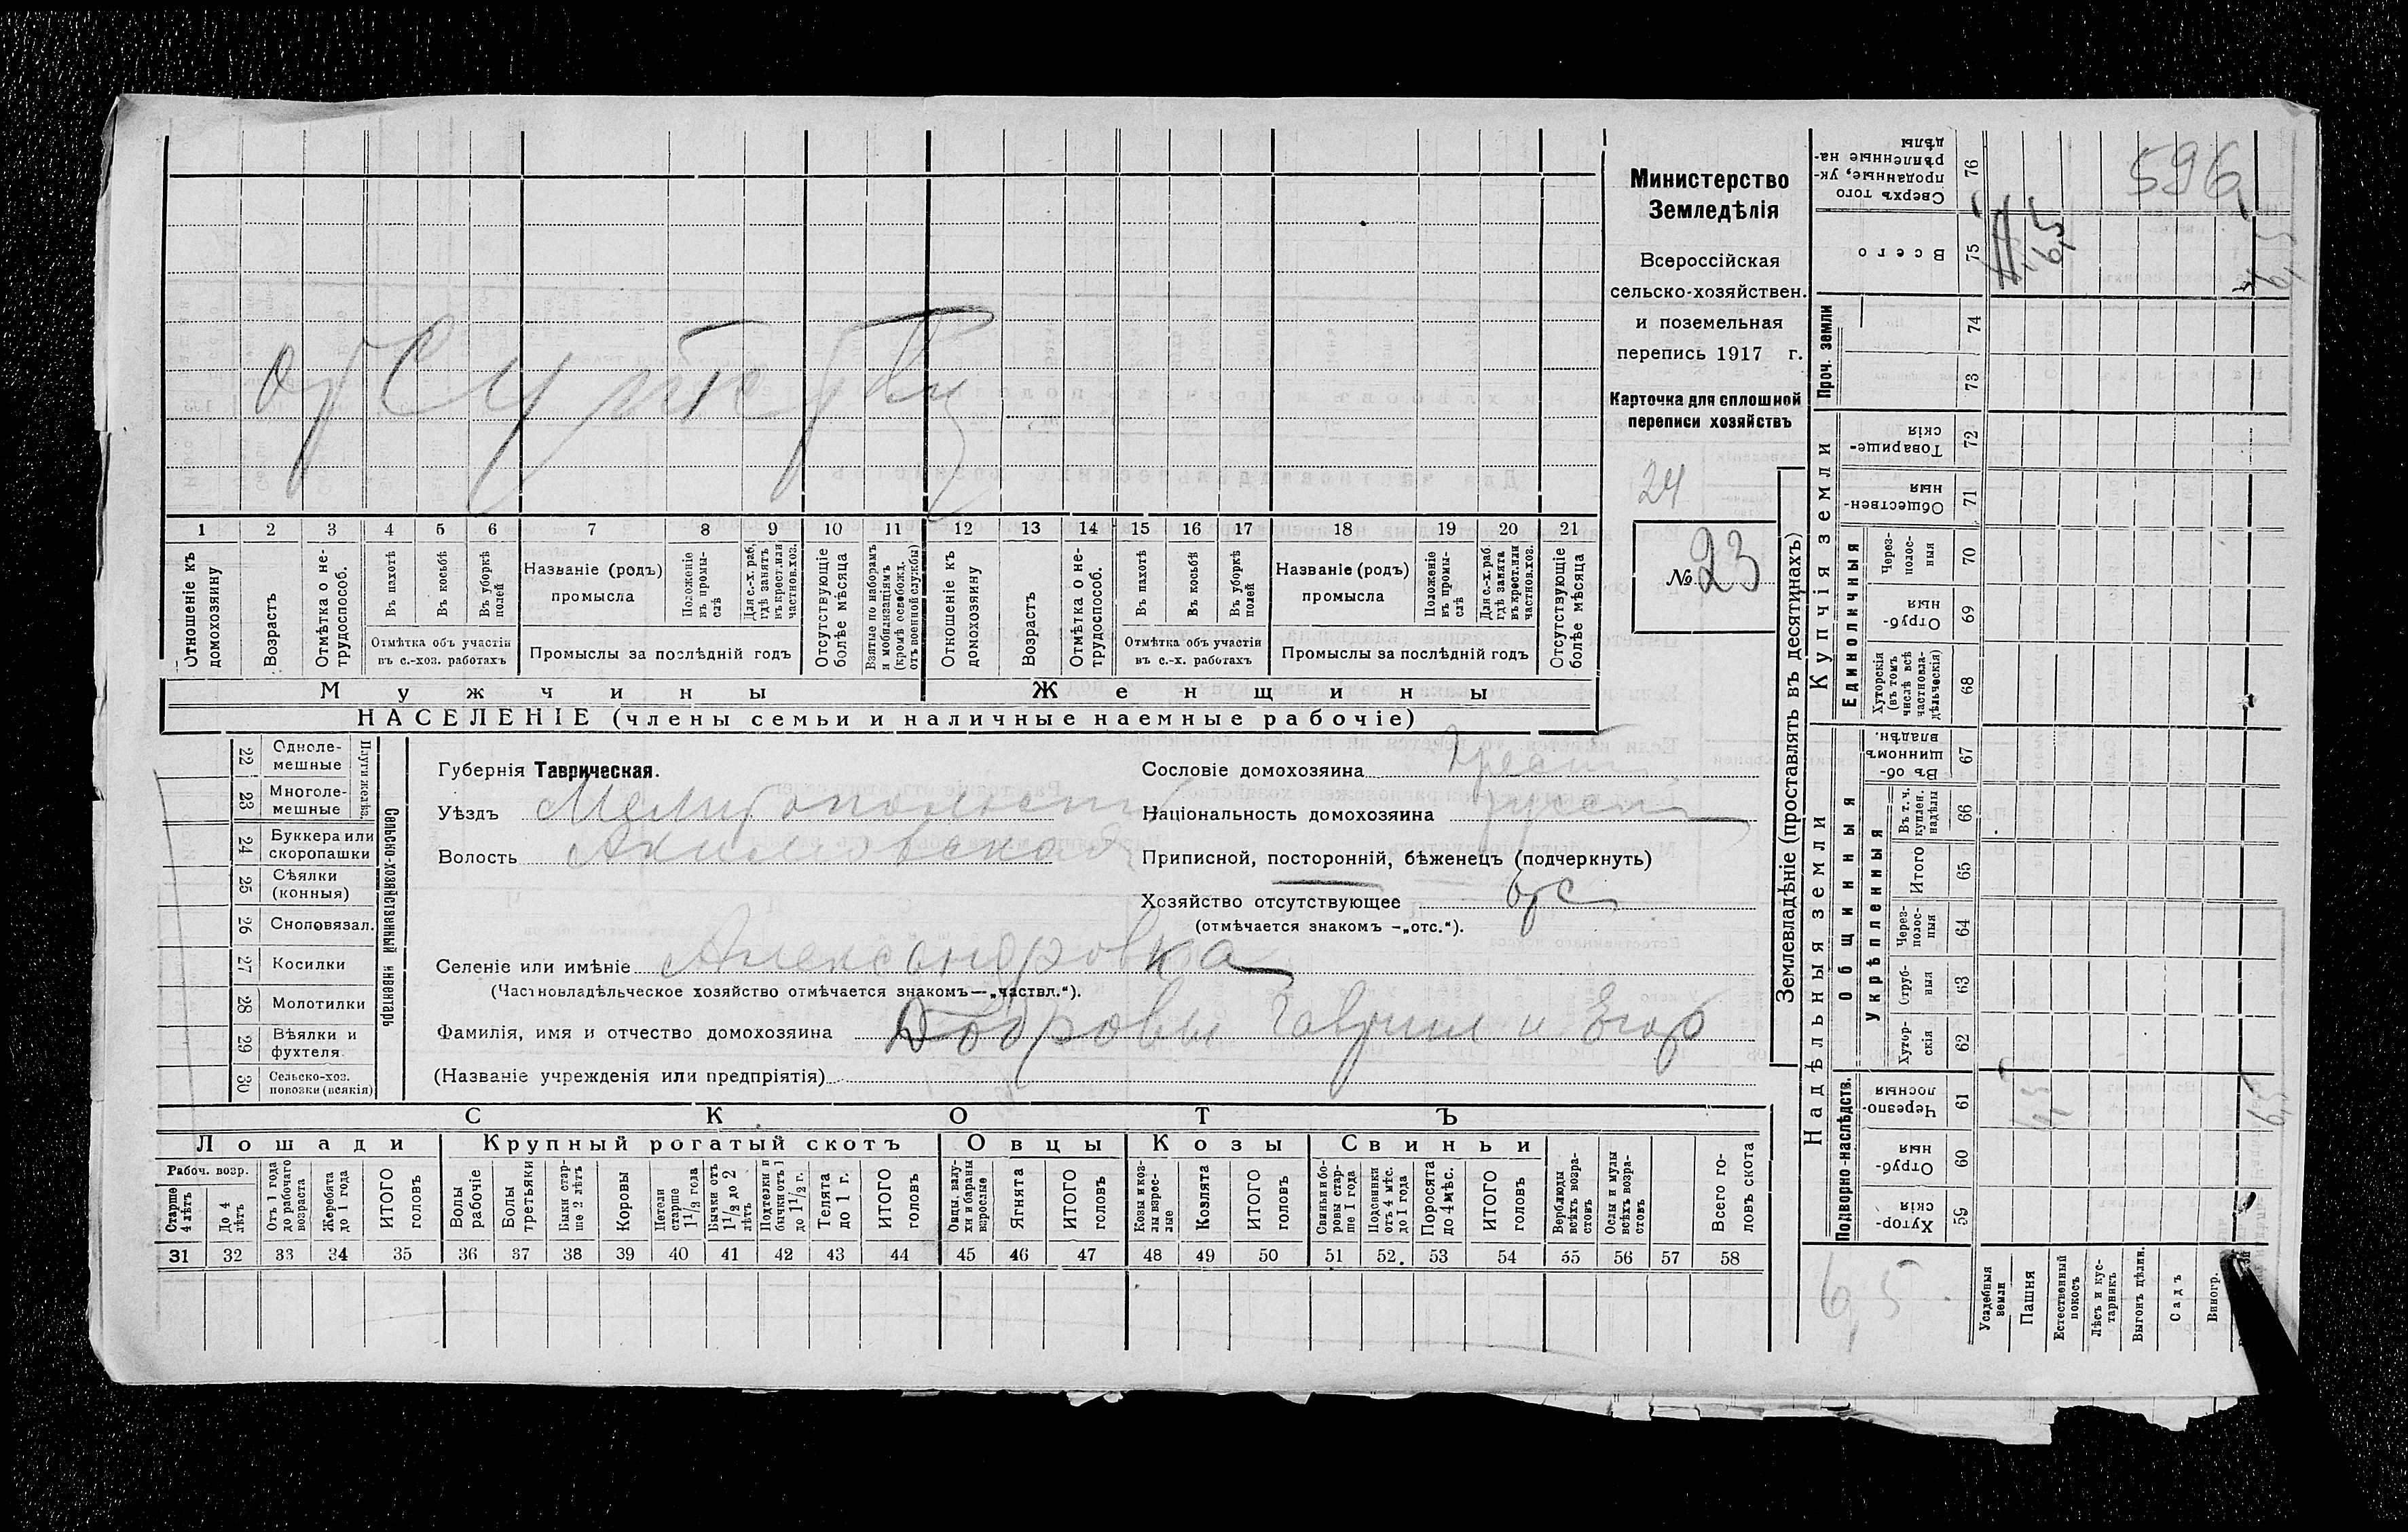 отсутств
Министерство
Земледѣлія
Всероссійская
сельско-хозяйствен.
и поземельная
перепись 1917 г.
Карточка для сплошной
переписи хозяйствъ
24
№ 23
1 2 3 4 5 6 7 8 9 10 11 12 13 14 15 16 17 18 19 20 21
Отношеніе къ домохозяину
Возрастъ
Отмѣтка о не-трудоспособ.
Въ пахотѣ
Въ косьбѣ
Въ уборкѣ полей
Отмѣтка объ участіи
въ с.-хоз. работахъ
Названіе (родъ)
промысла
Положеніе въ промы-слѣ
Для с.-х. раб. гдѣ занятъ въ крест. или частнов. хоз.
Промыслы за послѣдній годъ
Отсутствующіе болѣе мѣсяца
Взятые по наборамъ и мобилизаціямъ (кромѣ освобожд. отъ военной службы)
Отношеніе къ домохозяину
Возрастъ
Отмѣтка о не-трудоспособ.
Въ пахотѣ
Въ косьбѣ
Въ уборкѣ полей
Отмѣтка объ участіи
въ с.-х. работахъ
Названіе (родъ)
промысла
Положеніе въ промы-слѣ
Для с.-х. раб. гдѣ занята въ крест. или частнов. хоз.
Промыслы за послѣдній годъ
Отсутствующіе болѣе мѣсяца
Мужчины Женщины
НАСЕЛЕНІЕ (члены семьи и наличные наемные рабочіе)
22 Одноле-мешные
23 Многоле-мешные
Плуги желѣз.
24 Буккера или скоропашки
25 Сѣялки (конныя)
26 Сноповязал.
27 Косилки
28 Молотилки
29 Вѣялки и фухтеля
30 Сельско-хоз. повозки (всякія)
Сельско-хозяйственный инвентарь
Губернія Таврическая.
Уѣздъ Мелитопольскій
Волость Акимовская
Сословіе домохозяина крест
Національность домохозяина русск
Приписной, посторонній, бѣженецъ (подчеркнуть)
Хозяйство отсутствующее отс
(отмѣчается знакомъ -„отс.“).
Селеніе или имѣніе Александровка
(Частновладѣльческое хозяйство отмѣчается знакомъ—„частвл.“).
Фамилія, имя и отчество домохозяина Добровы Гавриил и Егор
(Названіе учрежденія или предпріятія)
СКОТЪ
Лошади Крупный рогатый скотъ Овцы Козы Свиньи
Рабоч. возр.
Старше 4 лѣтъ
До 4 лѣтъ
Отъ 1 года до рабочаго возраста
Жеребята до 1 года
ИТОГО головъ
Волы рабочіе
Волы третьяки
Быки стар-ше 2 лѣтъ
Коровы
Нетели старше 1 1/2 года
Бычки отъ 1 1/2 до 2 лѣтъ
Подтелки и бычки отъ 1 до 1 1/2 г.
Телята до 1 г.
ИТОГО головъ
Овцы, валу-хи и бараны взрослые
Ягнята
ИТОГО головъ
Козы и коз-лы взрос-лые
Козлята
ИТОГО головъ
Свиньи и бо-ровы стар-ше 1 года
Подсвинки отъ 4 мѣс. до 1 года
Поросята до 4 мѣс.
ИТОГО головъ
Верблюды всѣхъ возра-стовъ
Ослы и мулы всѣхъ возра-стовъ
Всего го-ловъ скота
31 32 33 34 35 36 37 38 39 40 41 42 43 44 45 46 47 48 49 50 51 52. 53 54 55 56 57 58
Землевладѣніе (проставлять въ десятинахъ)
Надѣльныя земли Купчія земли Проч. земли
Подворно-наслѣдств.
Общинныя
Укрѣпленныя
Единоличныя
Сверхъ того проданные, ук-рѣпленные на-дѣлы 76
Всего 75
74
73
Товарище-скія 72
Обществен-ныя 71
Через-полос-ныя 70
Отруб-ныя 69
Хуторскія (въ томъ числѣ всѣ частновла-дѣльческія) 68
Въ об-щинномъ владѣн. 67
Въ т. ч. куплен. надѣлы 66
Итого 65
Через-полос-ныя 64
Отруб-ныя 63
Хутор-скія 62
Черезпо-лосныя 61
Отруб-ныя 60
Хутор-скія 59
596
6,5
6,5
6,5
6,5
6,5
Усадебныя земли
Пашня
Естественный покосъ
Лѣсъ и кус-тарникъ
Выгонъ цѣлин.
Садъ
Виногр.